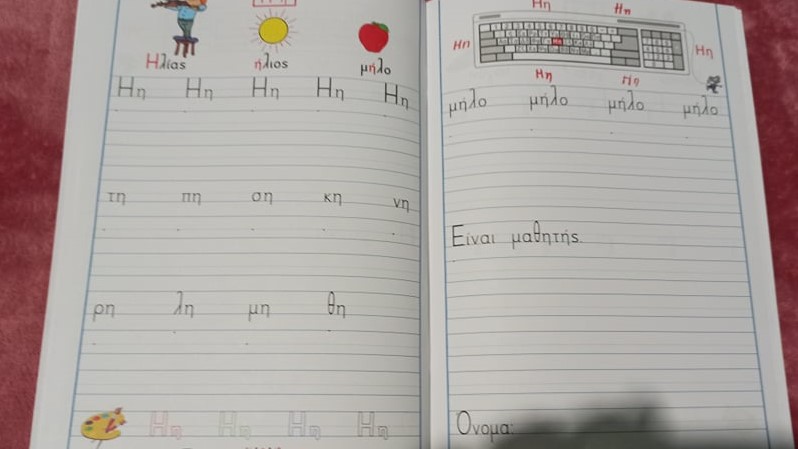 Ηλίας ήλιος μήλο
Ηη Ηη Ηη Ηη Ηη
τη πη ση κη νη
ρη λη μη θη
Ηη Ηη Ηη Ηη
Ηη Ηη
Ηη Ηη
Ηη Ηη
μήλο μήλο μήλο μήλο
Είναι μαθητής.
Όνομα: